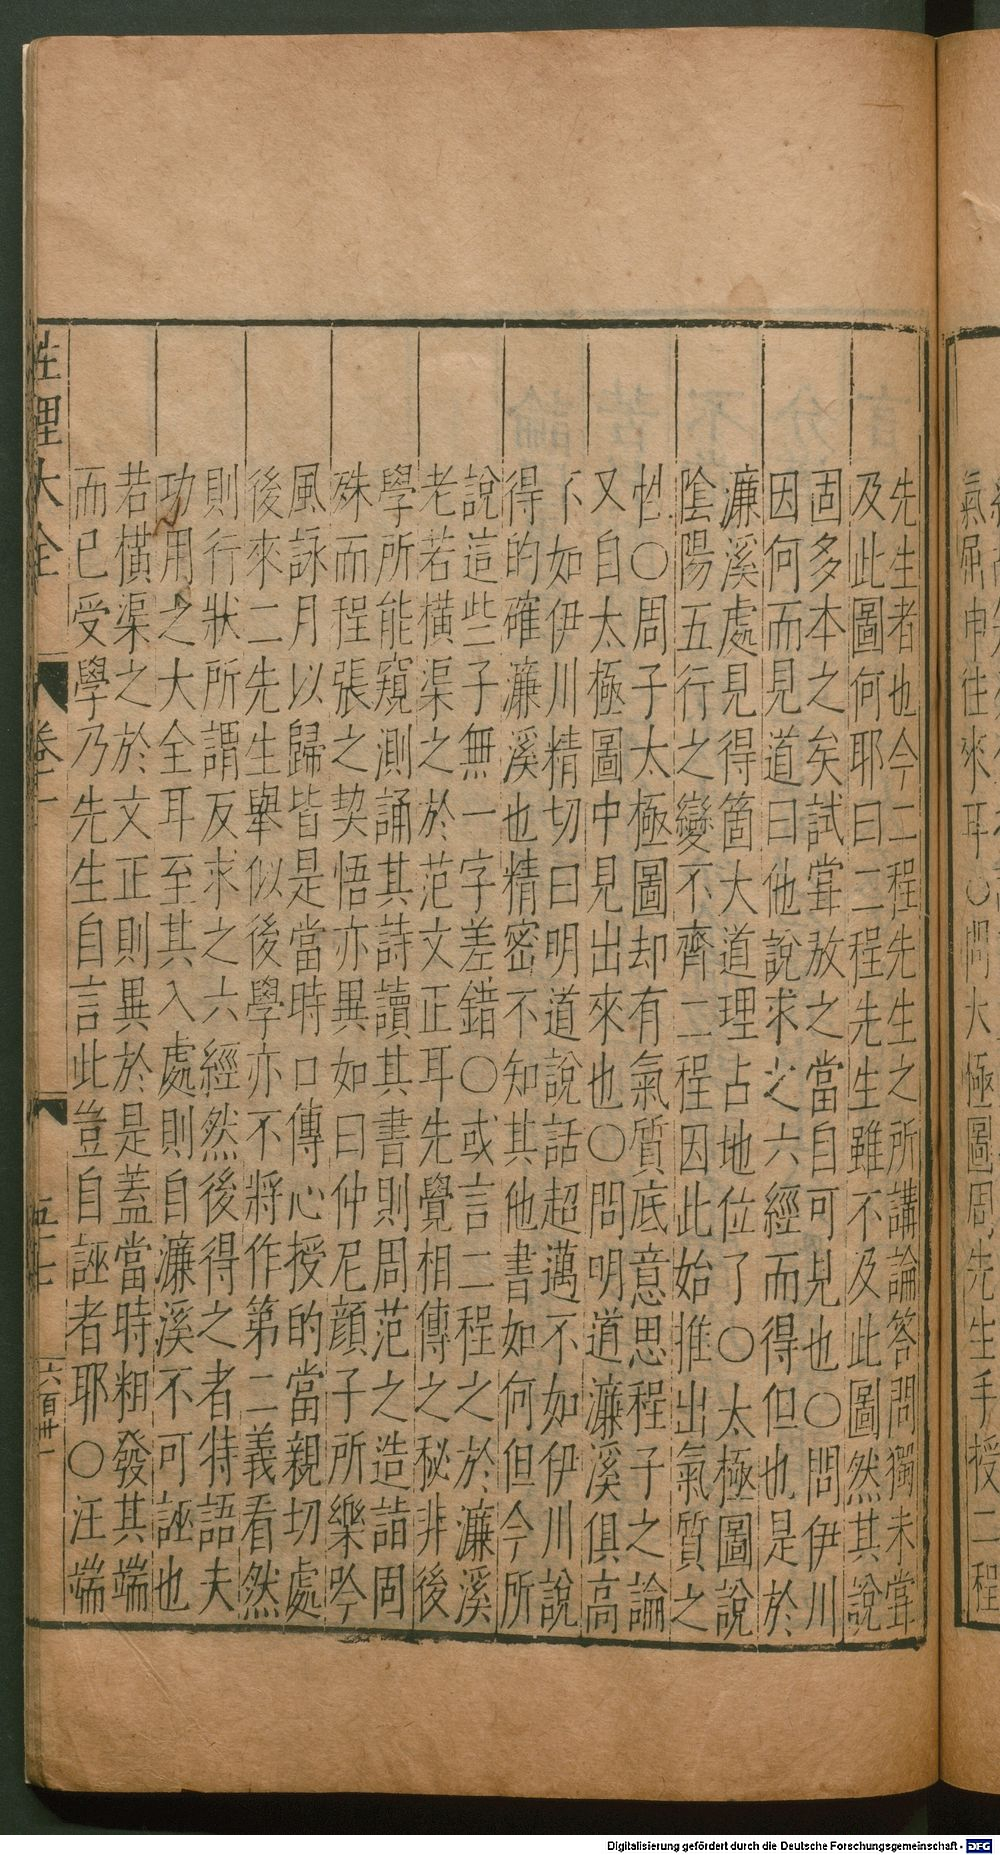 先生者也今二程先生之所講論答問獨未甞
及此圖何耶曰二程先生雖不及此圖然其說
固多本之矣試甞放之當自可見也〇問伊川
因何而見道曰他說求之六經而得但也是於
濂溪處見得箇大道理占地位了〇太極圖說
陰陽五行之變不齊二程因此始推出氣質之
性〇周子太極圖却有氣質底意思程子之論
又自太極圖中見出來也〇問明道濂溪俱高
不如伊川精切曰明道說話超邁不如伊川說
得的確濂溪也精密不知其他書如何但今所
說這些子無一字差錯〇或言二程之於濂溪
老若橫渠之於范文正耳先覺相傳之秘非後
學所能窺測誦其詩讀其書則周范之造詣固
殊而程張之契悟亦異如曰仲尼顔子所樂吟
風詠月以歸皆是當時口傳心授的當親切處
後來二先生舉似後學亦不將作第二義看然
則行狀所謂反求之六經然後得之者特語夫
功用之大全耳至其入處則自濂溪不可誣也
若橫渠之於文正則異於是蓋當時粗發其端
而已受學乃先生自言此豈自誣者耶〇汪端
性理大全
卷一
五十七
六百卅一
氣屈申往來耳〇問太極圖周先生手授二程
Digitalisierung gefördert durch die Deutsche Forschungsgemeinschaft - DFG